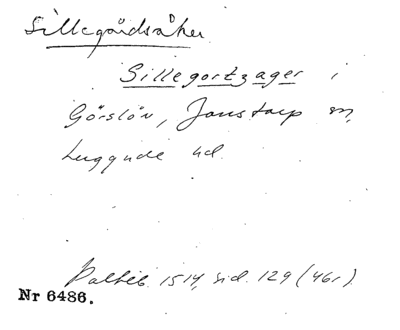 Sillegårdsåker
Sillegortzager i
Görslöv, Jonstorp sn,
Luggude hd.
Palteb. 1514, sid. 129 (46r).
Nr 6486.